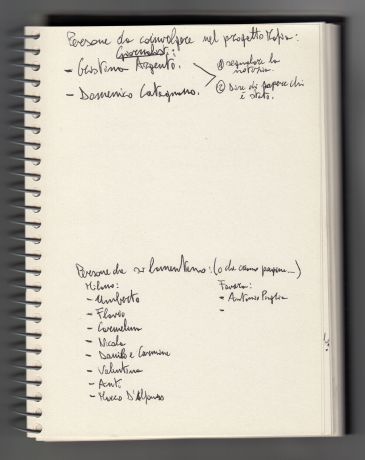 Persone da coinvolgere nel progetto Mafia:
Giornalisti:
- Giustina Argento.
- Domenico Catagnano.
① segnalare la notizia.
② Dire di sapere chi è stato.
Persone che si lamentano: (o che come
Milano:
- Umberto
- Flavio
- Carmelina
- Nicola
- Danilo e Carmine
- Valentina
- 
- Marco D'Alfonso
Favara:
- Antonio Puglia
-